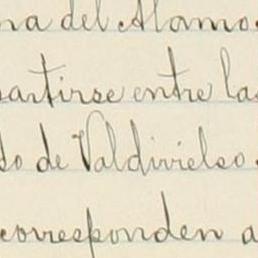 na del Alamo
partirse entre las
so de Valdivielso
corresponden a